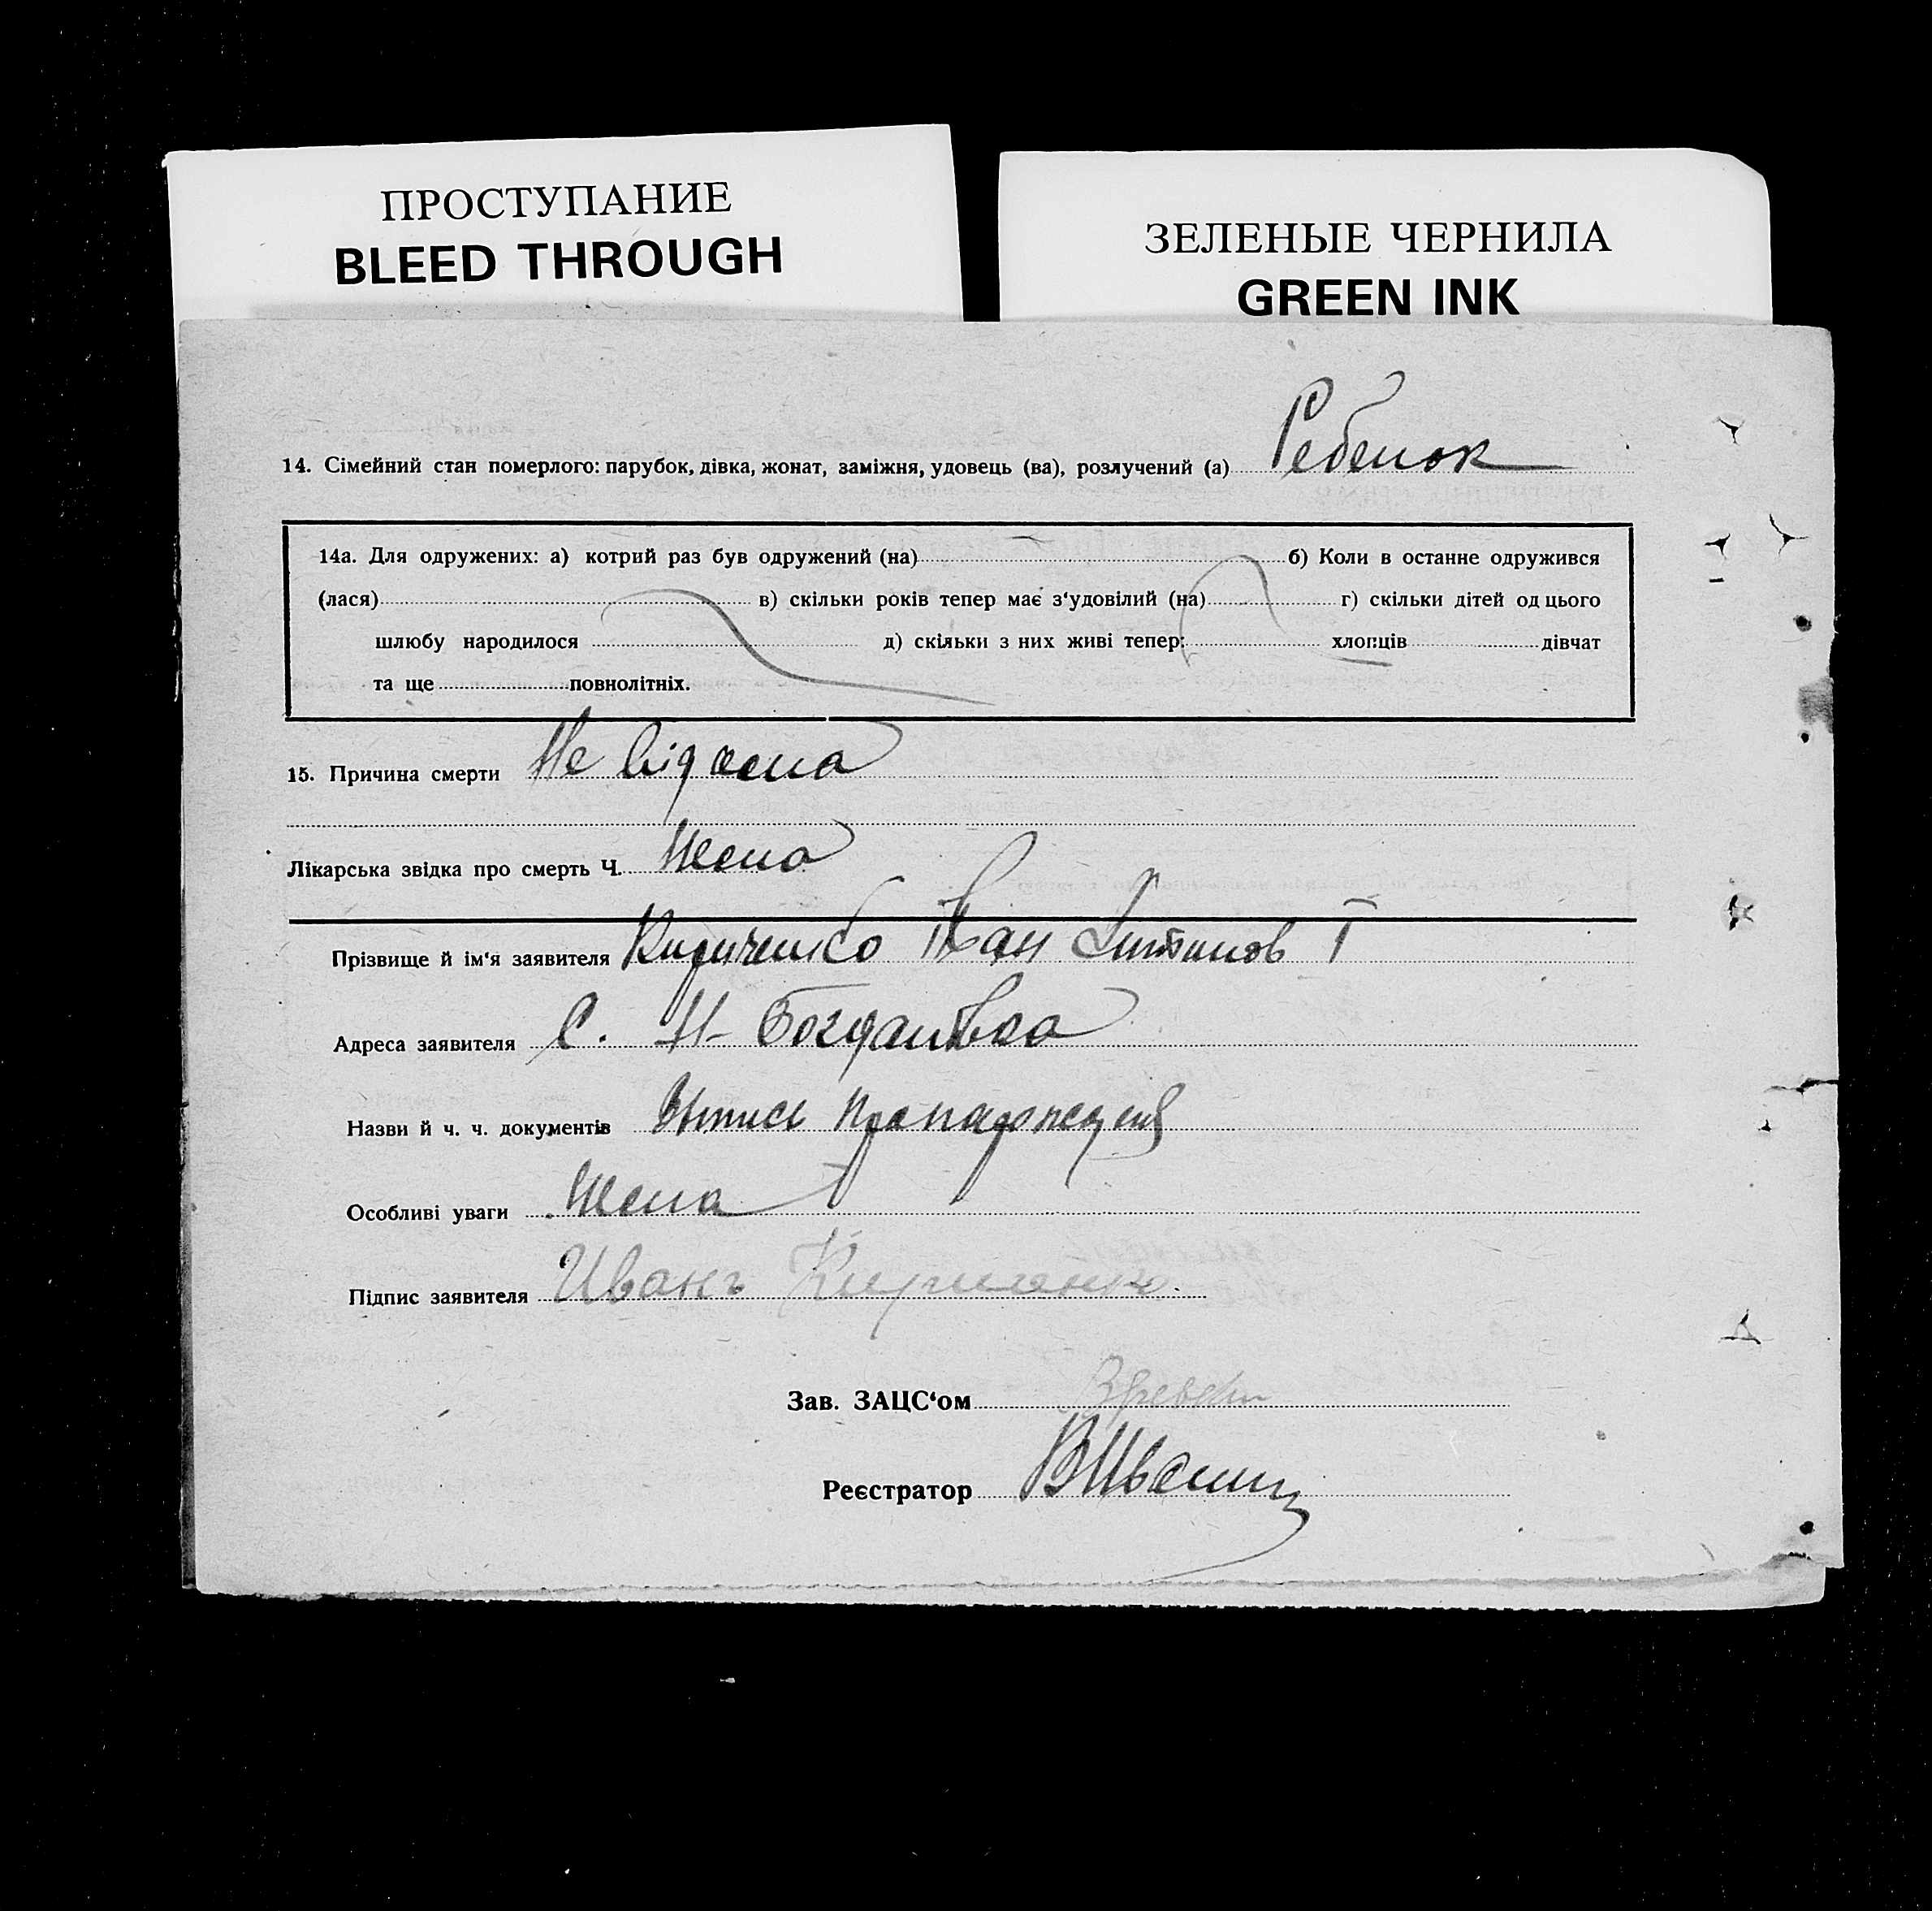 ПРОСТУПАНИЕ
BLEED THROUGH
ЗЕЛЕНЫЕ ЧЕРНИЛА
GREEN INK
14. Сімейний стан померлого: парубок, дівка, жонат, заміжня, удовець (ва), розлучений (а) Ребенок
14а. Для одружених: а) котрий раз був одружений (на) б) Коли в останне одружився
(лася) в) скільки років тепер має з'удовілий (на) г) скільки дітей од цього
шлюбу народилося д) скільки з них живі тепер: хлопців дівчат
та ще повнолітніх.
15. Причина смерти Не відома
Лікарська звідка про смерть Ч. Нема
Прізвище й ім'я заявителя Іван
Адреса заявителя С. Н-Богданівка
Назви й ч. ч. документів
Особливі уваги Нема
Підпис заявителя Иванъ
Зав. ЗАЦС'ом
Реєстратор